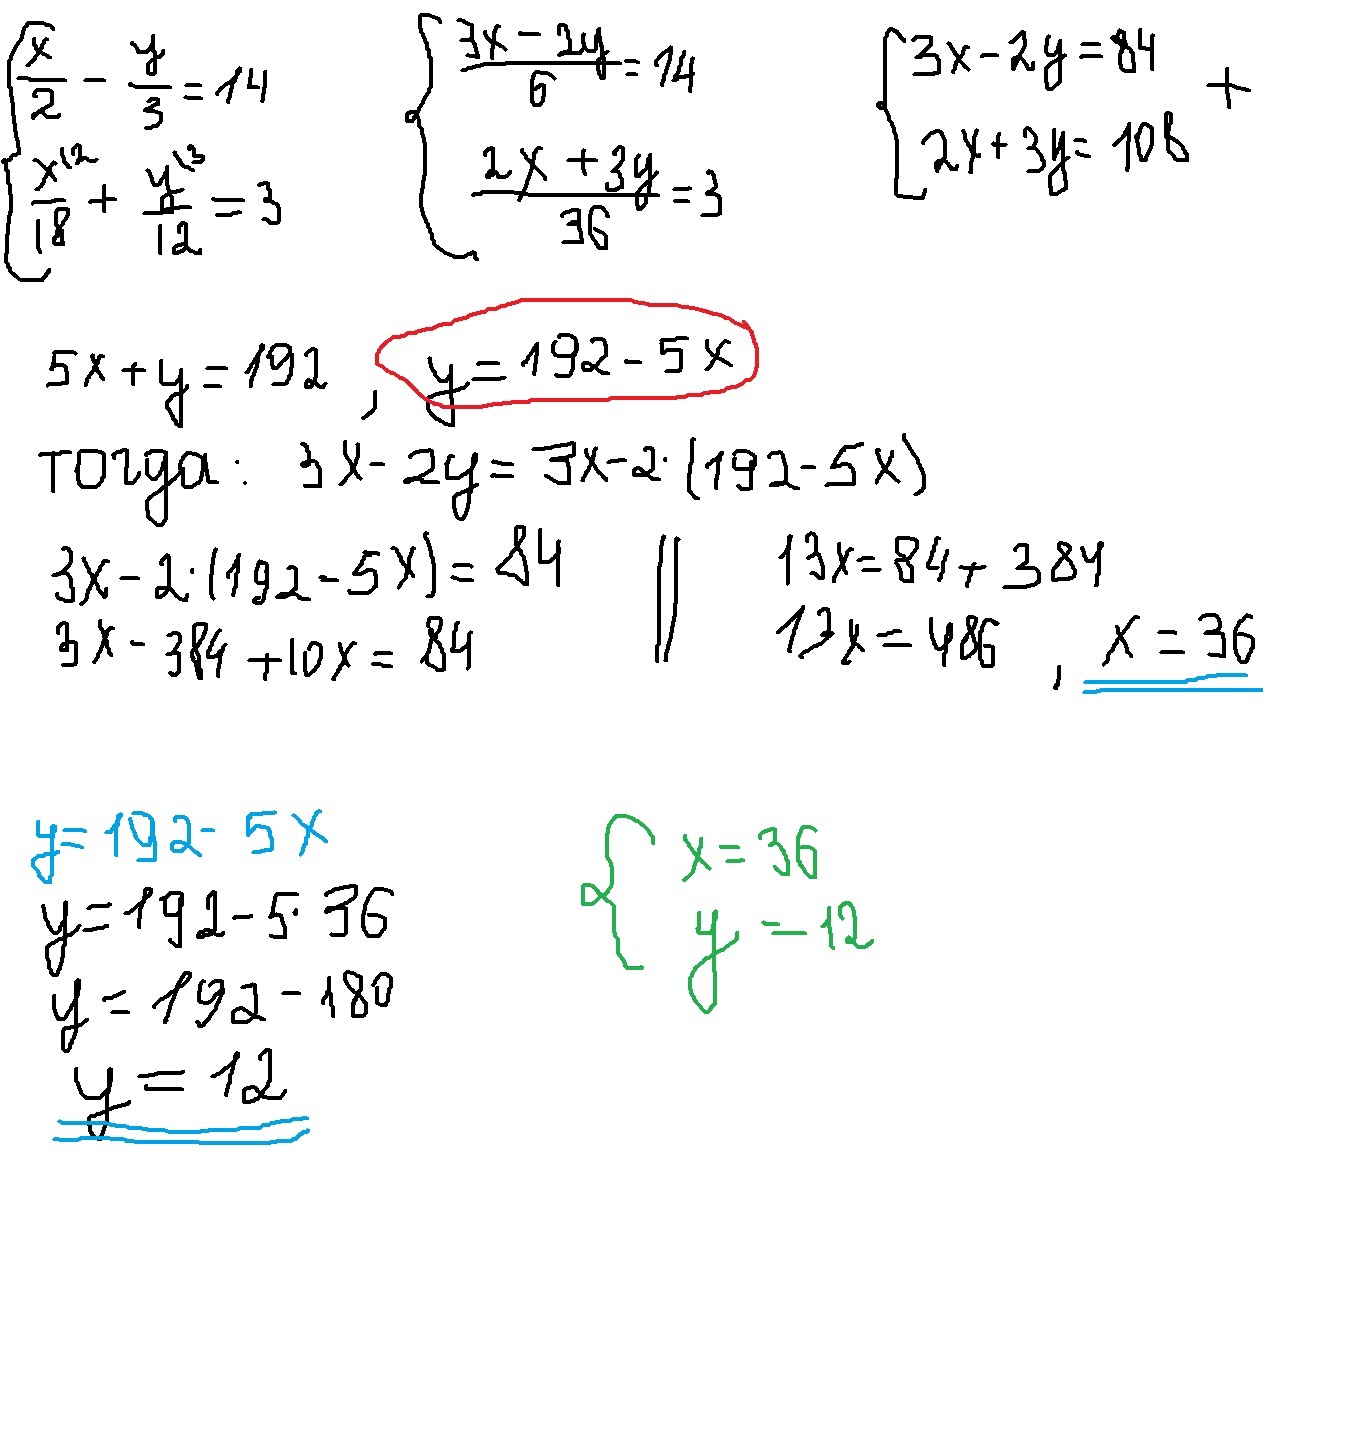 { x/2 - y/3 = 14
{ x\2/18 + y\3/12 = 3
{ (3x - 2y)/6 = 14
{ (2x + 3y)/36 = 3
{ 3x - 2y = 84 +
{ 2x + 3y = 108
5x + y = 192 , y = 192 - 5x
тогда: 3x - 2y = 3x - 2·(192 - 5x)
3x - 2·(192 - 5x) = 84 || 13x = 84 + 384
3x - 384 + 10x = 84 || 13x = 486 , x = 36
y = 192 - 5x
y = 192 - 5·36
y = 192 - 180
y = 12
{ x = 36
{ y = -12